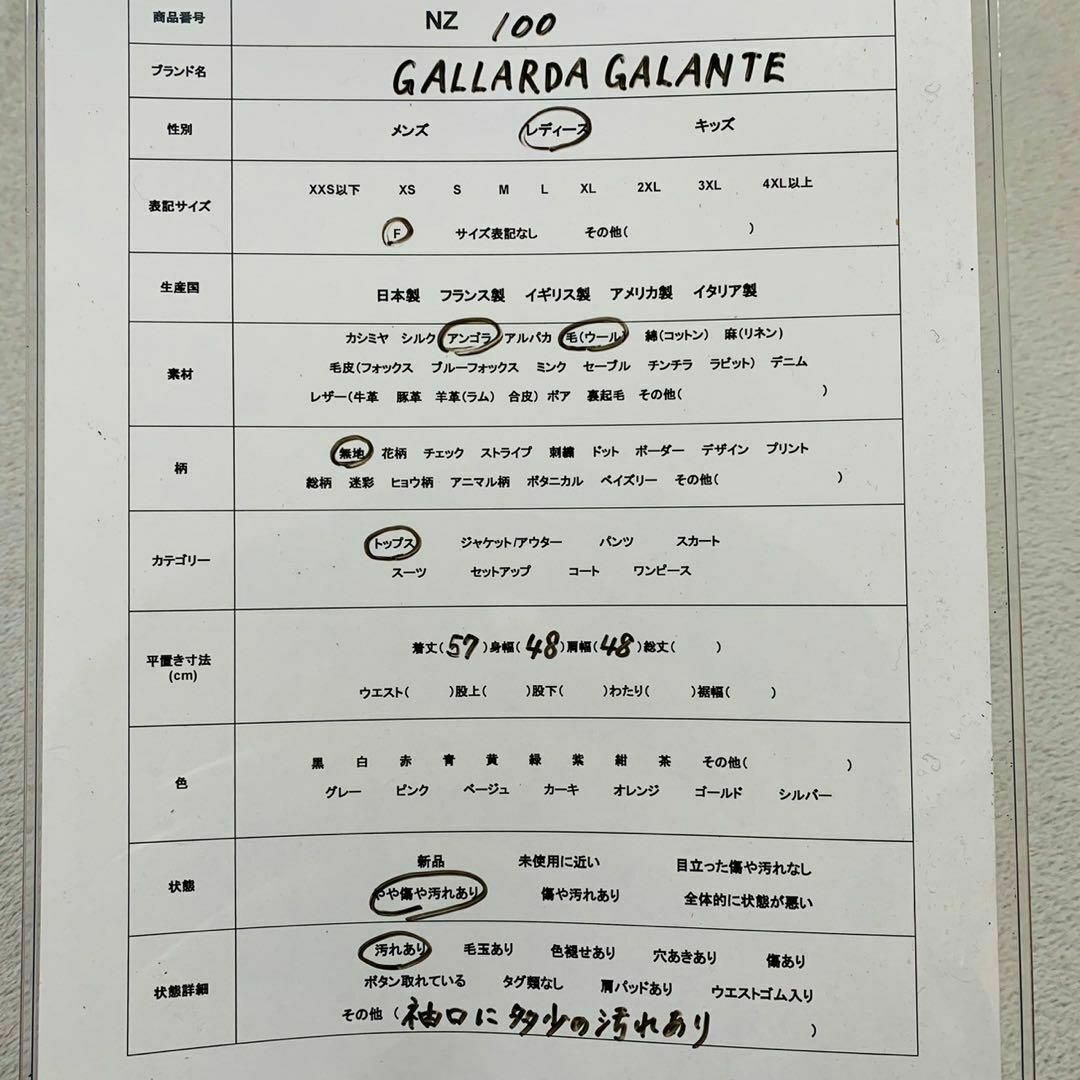 商品番号 NZ 100
ブランド名 GALLARDA GALANTE
性別 メンズ レディース キッズ
表記サイズ
XXS以下 XS S M L XL 2XL 3XL 4XL以上
F サイズ表記なし その他( )
生産国 日本製 フランス製 イギリス製 アメリカ製 イタリア製
素材
カシミヤ シルク アンゴラ アルパカ 毛(ウール) 綿(コットン) 麻(リネン)
毛皮(フォックス ブルーフォックス ミンク セーブル チンチラ ラビット) デニム
レザー(牛革 豚革 羊革(ラム) 合皮) ボア 裏起毛 その他( )
柄
無地 花柄 チェック ストライプ 刺繍 ドット ボーダー デザイン プリント
総柄 迷彩 ヒョウ柄 アニマル柄 ボタニカル ペイズリー その他( )
カテゴリー
トップス ジャケット/アウター パンツ スカート
スーツ セットアップ コート ワンピース
平置き寸法
(cm)
着丈(57)身幅(48)肩幅(48)総丈( )
ウエスト( )股上( )股下( )わたり( )裾幅( )
色
黒 白 赤 青 黄 緑 紫 紺 茶 その他( )
グレー ピンク ベージュ カーキ オレンジ ゴールド シルバー
状態
新品 未使用に近い 目立った傷や汚れなし
やや傷や汚れあり 傷や汚れあり 全体的に状態が悪い
状態詳細
汚れあり 毛玉あり 色褪せあり 穴あきあり 傷あり
ボタン取れている タグ類なし 肩パッドあり ウエストゴム入り
その他 (袖口に多少の汚れあり )